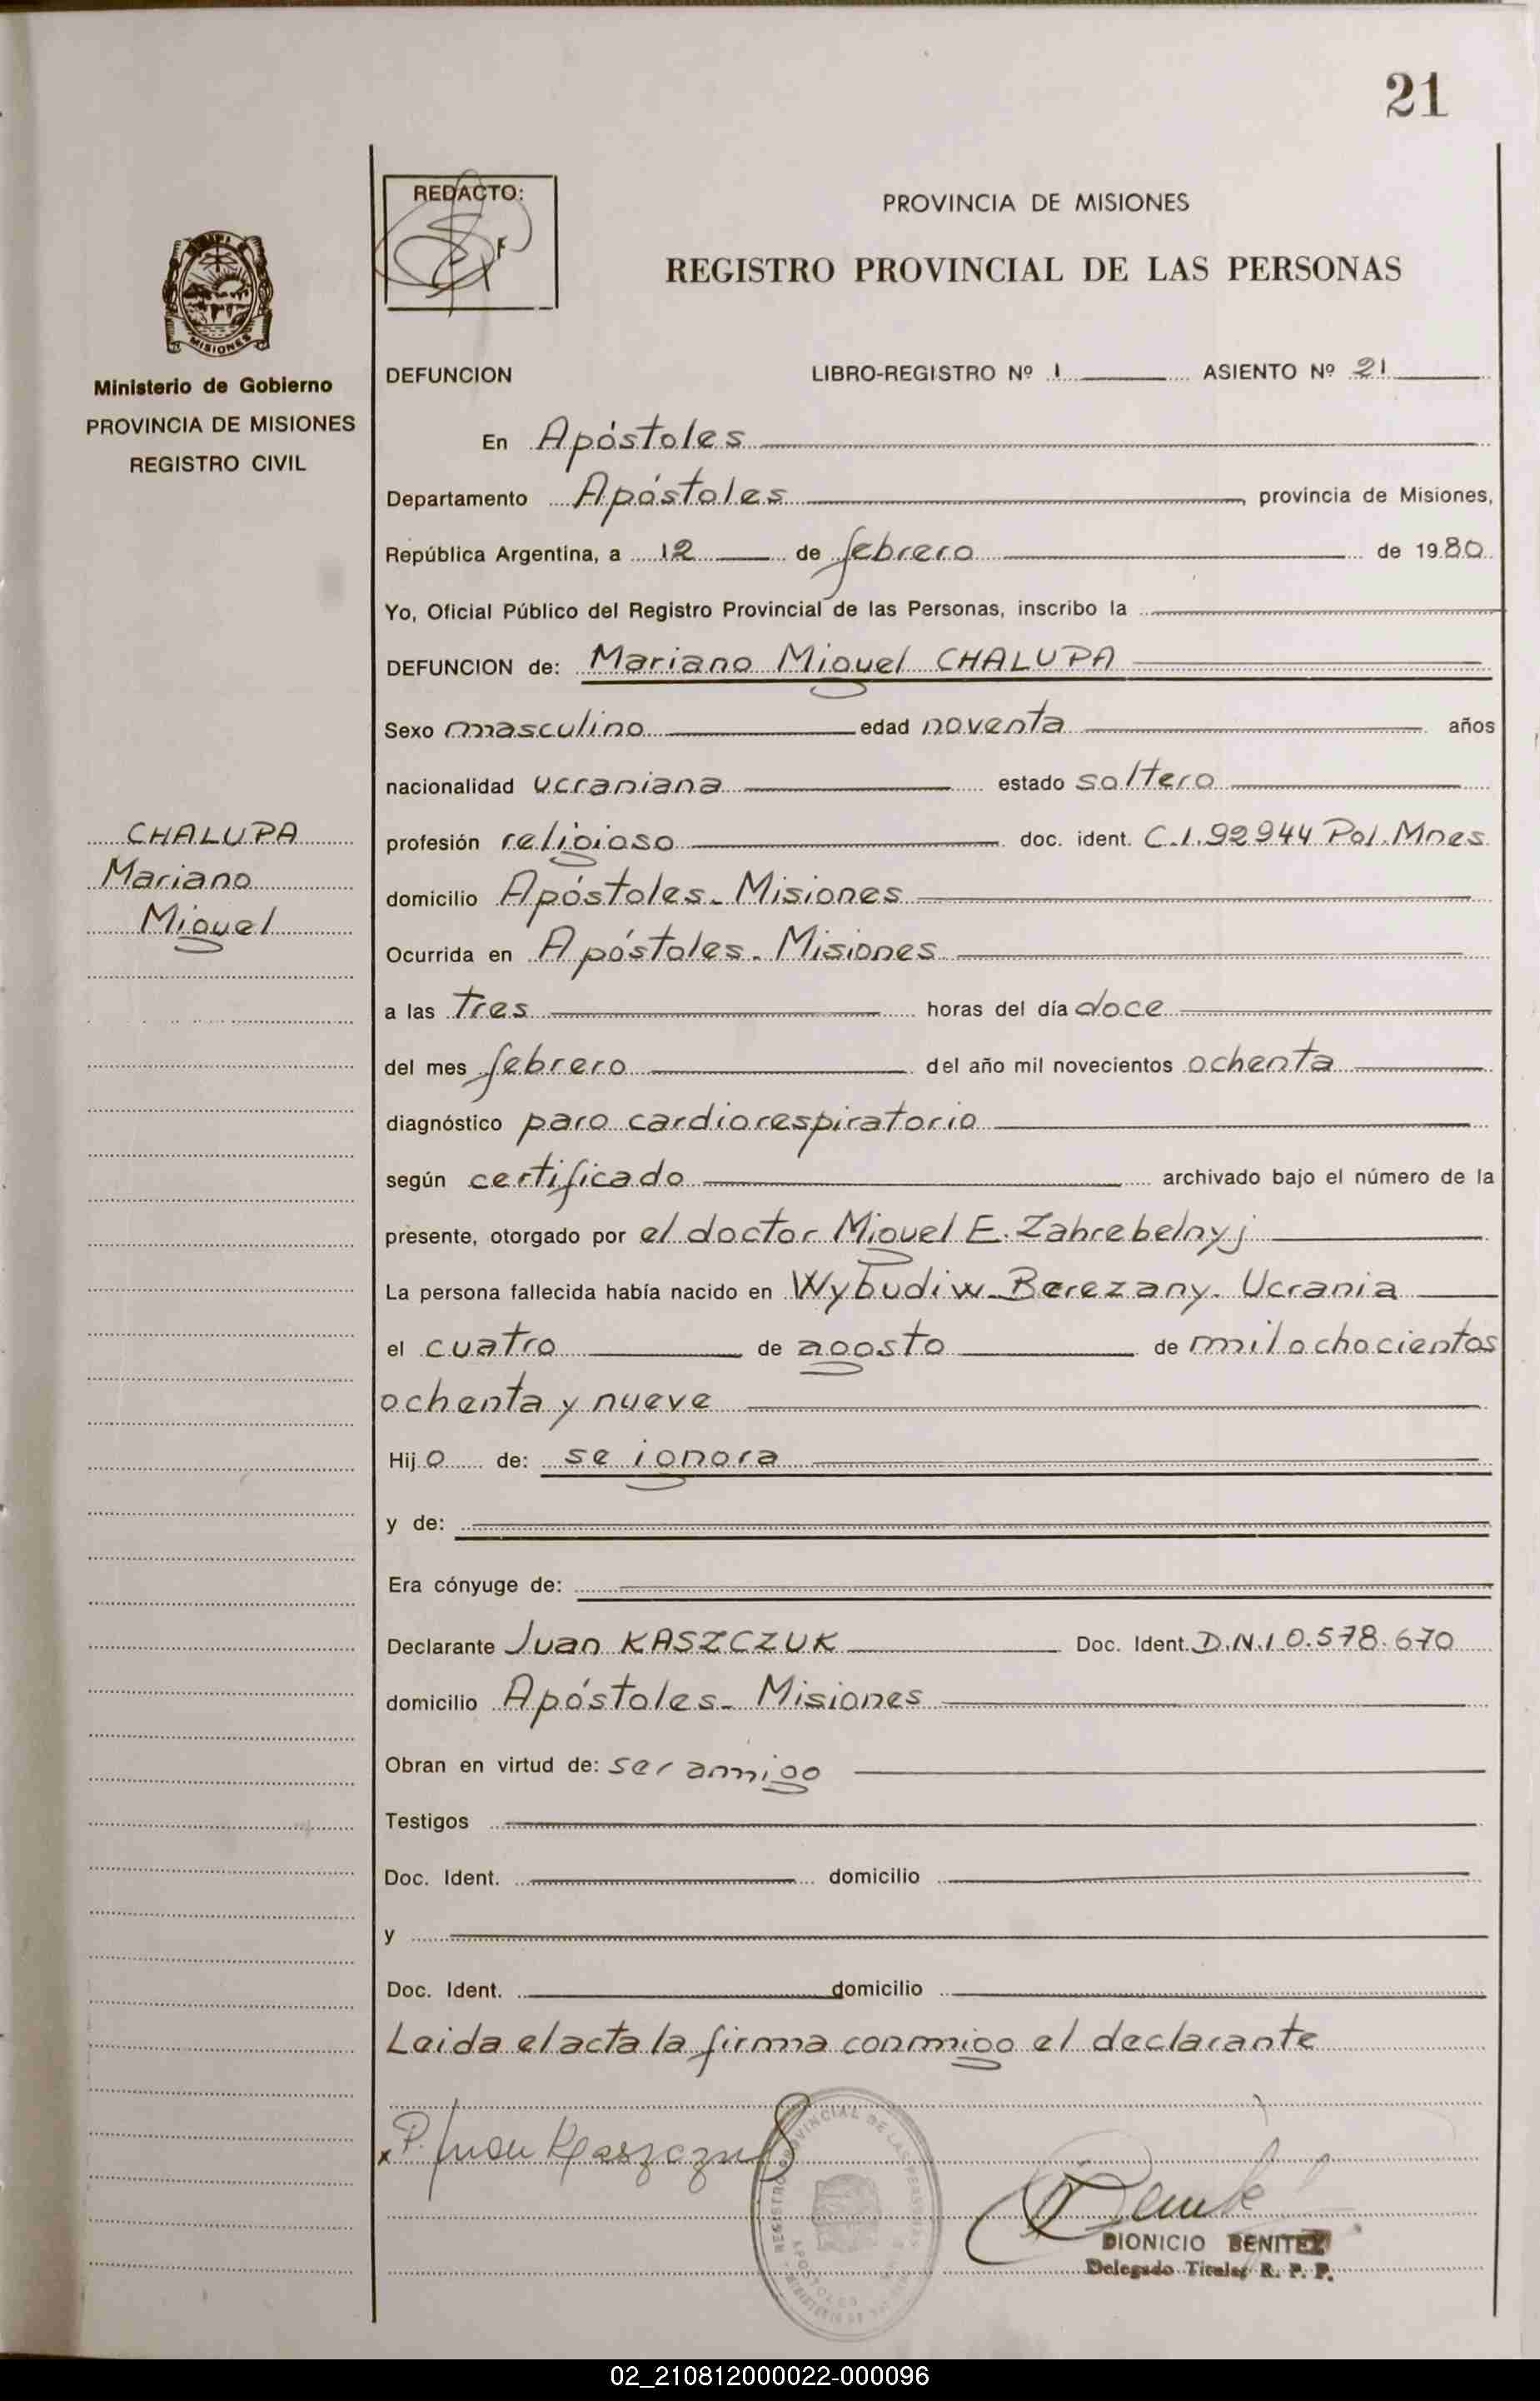 21
REDACTO:
PROVINCIA DE MISIONES
REGISTRO PROVINCIAL DE LAS PERSONAS
MISIONES
Ministerio de Gobierno
PROVINCIA DE MISIONES
REGISTRO CIVIL
CHALUPA
Mariano
Miguel
DEFUNCION LIBRO-REGISTRO Nº 1 ASIENTO Nº 21
En Apóstoles
Departamento Apóstoles, provincia de Misiones,
República Argentina, a 12 de febrero de 1980
Yo, Oficial Público del Registro Provincial de las Personas, inscribo la
DEFUNCION de: Mariano Miguel CHALUPA
Sexo masculino edad noventa años
nacionalidad ucraniana estado soltero
profesión religioso doc. ident. C.I. 92944 Pol. Mnes
domicilio Apóstoles - Misiones
Ocurrida en Apóstoles - Misiones
a las tres horas del día doce
del mes febrero del año mil novecientos ochenta
diagnóstico paro cardiorespiratorio
según certificado archivado bajo el número de la
presente, otorgado por el doctor Miguel E. Zahrebelnyj
La persona fallecida había nacido en Wybudiw - Berezany - Ucrania
el cuatro de agosto de mil ochocientos
ochenta y nueve
Hijo de: se ignora
y de:
Era cónyuge de:
Declarante Juan KASZCZUK Doc. Ident. D.N.I 0.578.670
domicilio Apóstoles - Misiones
Obran en virtud de: ser amigo
Testigos
Doc. Ident. domicilio
y
Doc. Ident. domicilio
Leida el acta la firma conmigo el declarante
x P. Juan Kaszczuk
REGISTRO PROVINCIAL DE LAS PERSONAS
APOSTOLES
DIONICIO BENITEZ
Delegado Titular R. P. P.
02_210812000022-000096